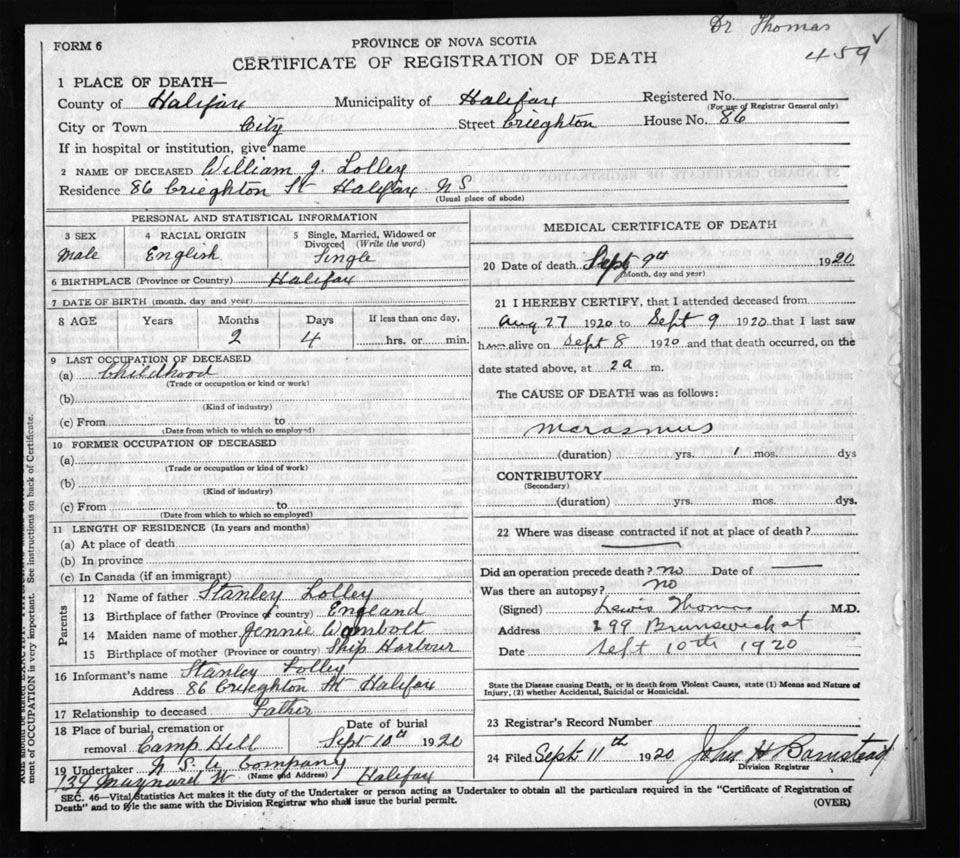 Dr Thomas
459 ✓
FORM 6
PROVINCE OF NOVA SCOTIA
CERTIFICATE OF REGISTRATION OF DEATH
1 PLACE OF DEATH—
County of Halifax Municipality of Halifax Registered No.
(For use of Registrar General only)
City or Town City Street Crieghton House No. 86
If in hospital or institution, give name
2 NAME OF DECEASED William J. Lolley
Residence 86 Crieghton St Halifax NS
(Usual place of abode)
PERSONAL AND STATISTICAL INFORMATION
3 SEX 4 RACIAL ORIGIN 5 Single, Married, Widowed or Divorced (Write the word)
Male English Single
6 BIRTHPLACE (Province or Country) Halifax
7 DATE OF BIRTH (month, day and year)
8 AGE Years Months Days If less than one day,
2 4 hrs. or min.
9 LAST OCCUPATION OF DECEASED
(a) Childhood
(Trade or occupation or kind or work)
(b)
(Kind of industry)
(c) From to
(Date from which to which so employed)
10 FORMER OCCUPATION OF DECEASED
(a)
(Trade or occupation or kind of work)
(b)
(Kind of industry)
(c) From to
(Date from which to which so employed)
11 LENGTH OF RESIDENCE (In years and months)
(a) At place of death
(b) In province
(c) In Canada (if an immigrant)
Parents
12 Name of father Stanley Lolley
13 Birthplace of father (Province or country) England
14 Maiden name of mother Jennie Wambolt
15 Birthplace of mother (Province or country) Ship Harbour
16 Informant's name Stanley Lolley
Address 86 Crieghton St Halifax
17 Relationship to deceased Father
18 Place of burial, cremation or removal Camp Hill
Date of burial
Sept 10th 1920
19 Undertaker N S U Company
(Name and Address)
139 Maynard St Halifax
MEDICAL CERTIFICATE OF DEATH
20 Date of death Sept 9th 1920
(Month, day and year)
21 I HEREBY CERTIFY, that I attended deceased from
Aug 27 1920 to Sept 9 1920 that I last saw
h alive on Sept 8 1920 and that death occurred, on the
date stated above, at 2 a m.
The CAUSE OF DEATH was as follows:
Marasmus
(duration) yrs. 1 mos. dys
CONTRIBUTORY
(Secondary)
(duration) yrs. mos. dys.
22 Where was disease contracted if not at place of death?
Did an operation precede death? no Date of —
Was there an autopsy? no
(Signed) Lewis Thomas M.D.
Address 299 Brunswick st
Date Sept 10th 1920
State the Disease causing Death, or in death from Violent Causes, state (1) Means and Nature of
Injury, (2) whether Accidental, Suicidal or Homicidal.
23 Registrar's Record Number
24 Filed Sept 11th 1920 John H Barnstead
Division Registrar
SEC. 46—Vital Statistics Act makes it the duty of the Undertaker or person acting as Undertaker to obtain all the particulars required in the "Certificate of Registration of
Death" and to file the same with the Division Registrar who shall issue the burial permit.
(OVER)
ment of OCCUPATION is very important. See instructions on back of Certificate.